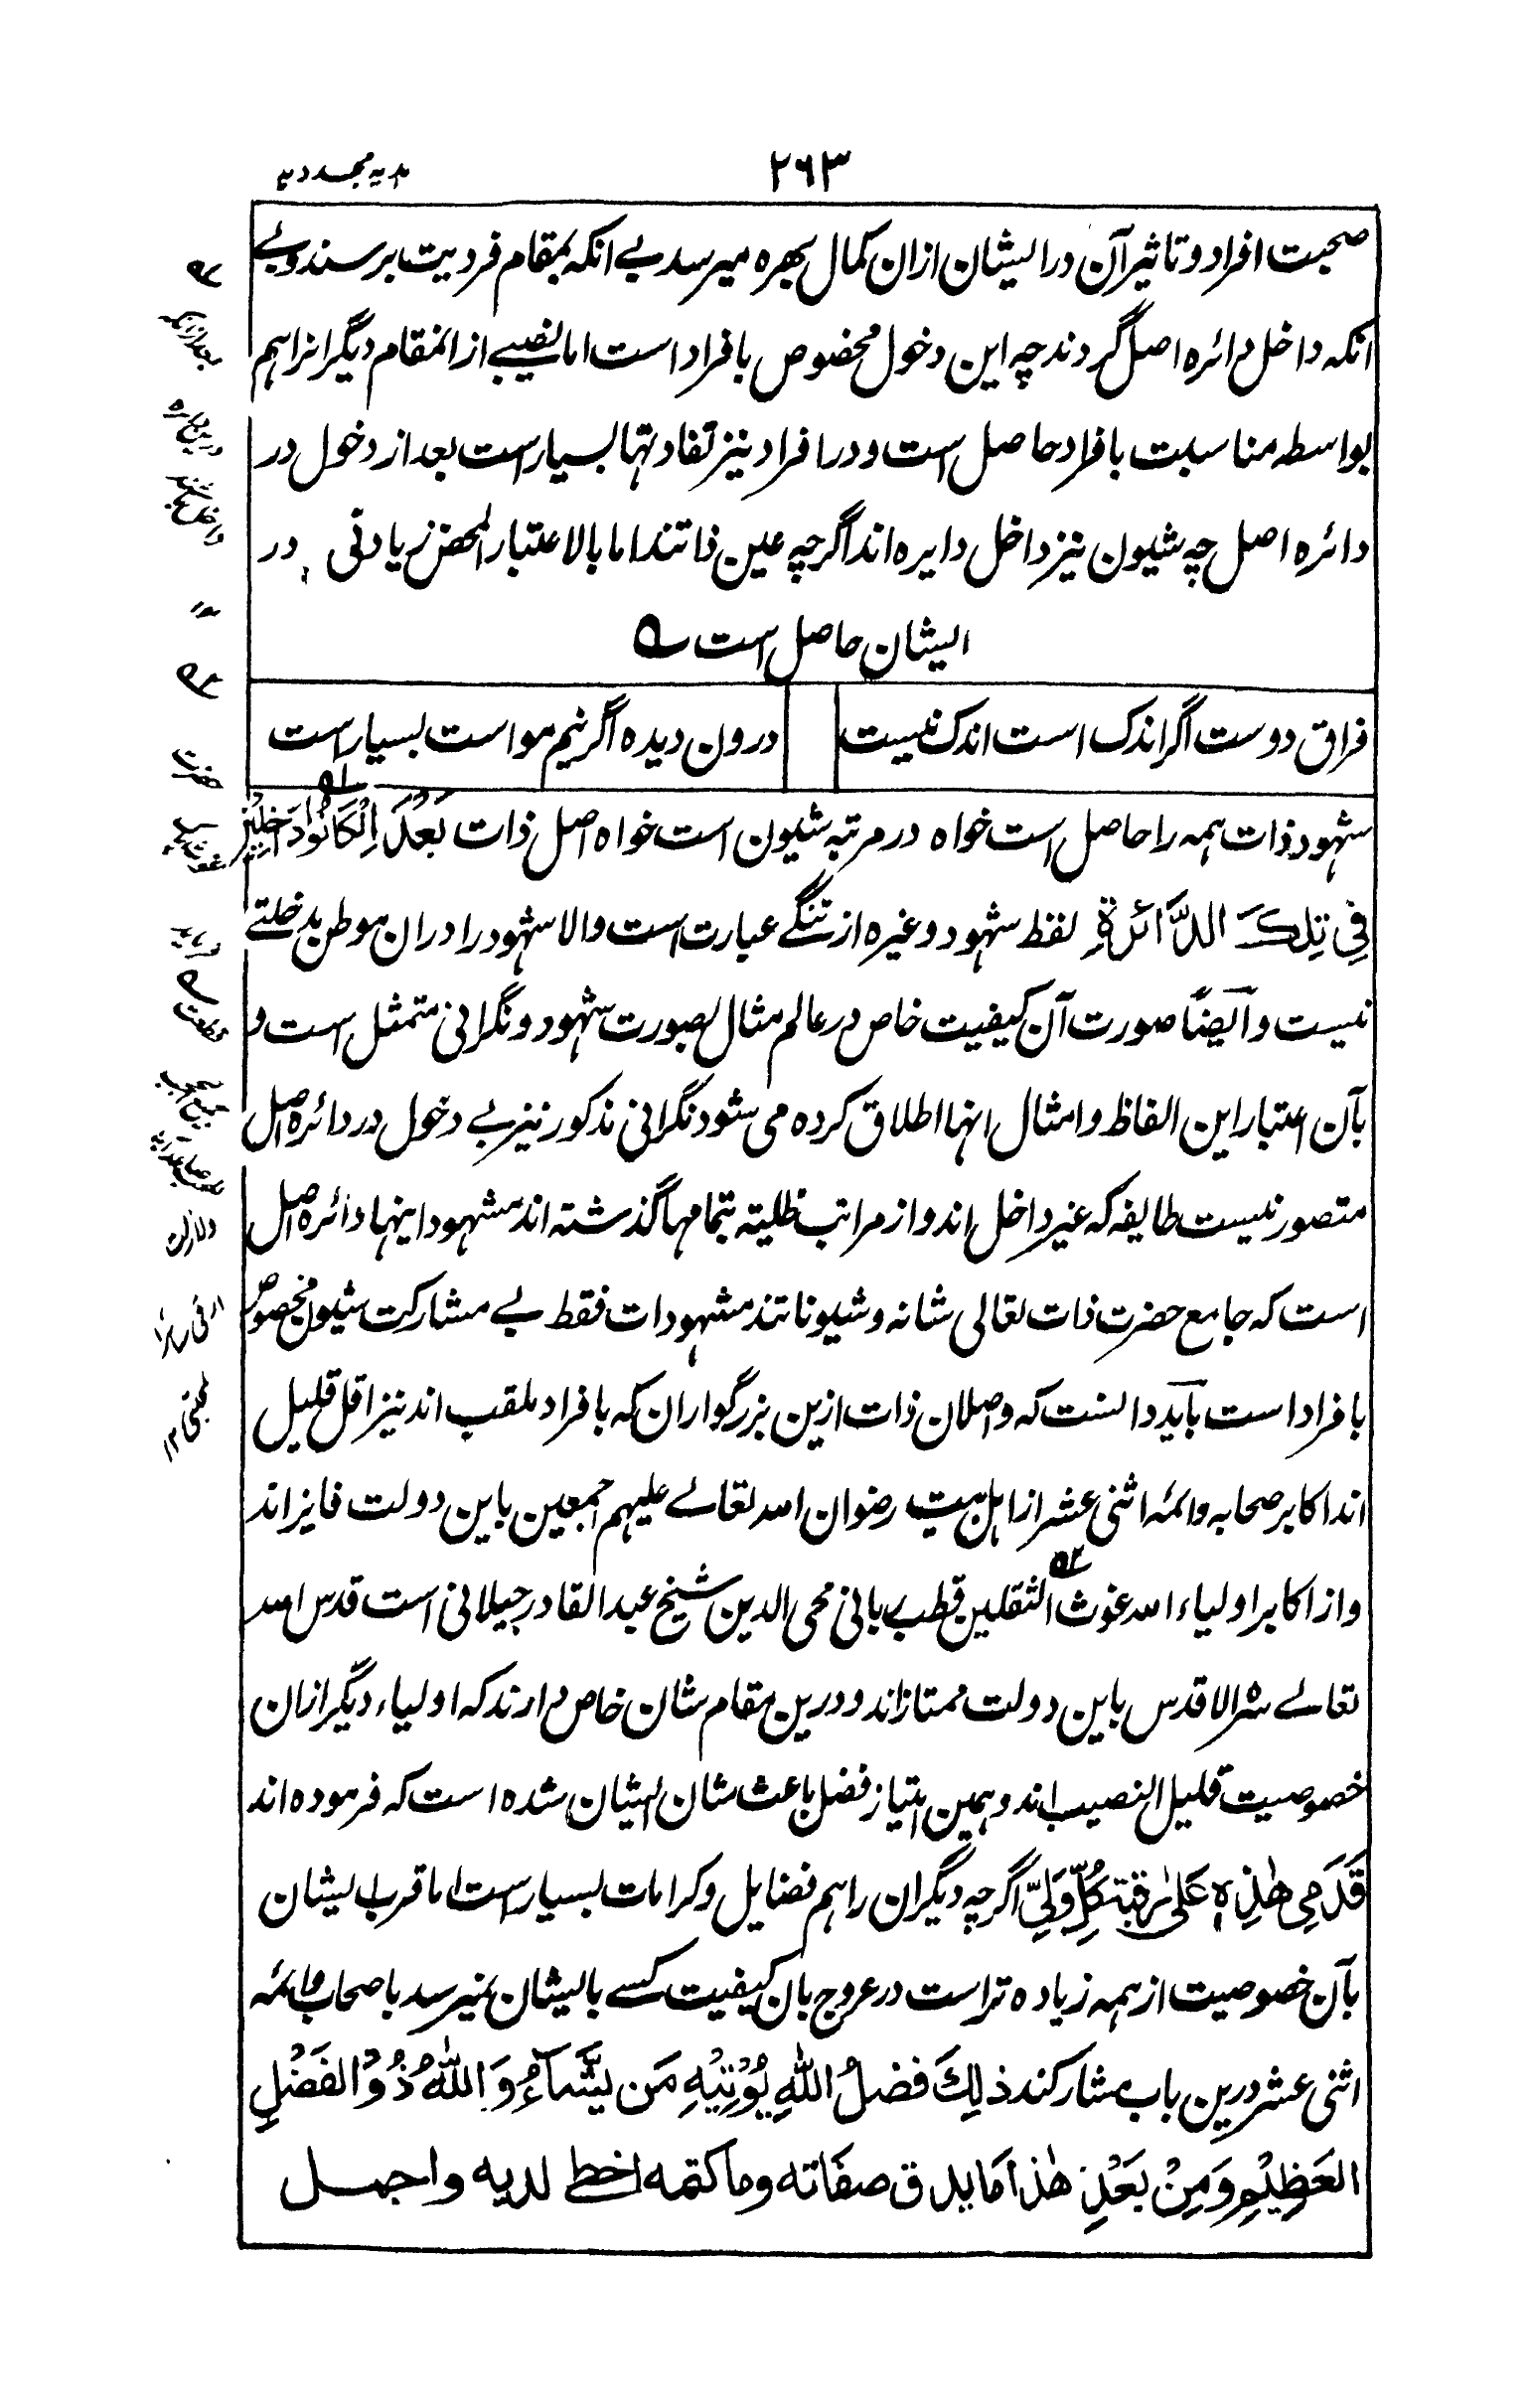 ۲۶۳
ہدیہ مجددیہ
صحبت افراد و تاثیر آن در ایشان ازان کمال بهره میرسد بے انکه بمقام فردیت برسند و بے
انکه داخل دائره اصل گردند چه این دخول مخصوص بافراد است اما نصیبے از انمقام دیگرانرا هم
بواسطه مناسبت بافراد حاصل است و در افراد نیز تفاوتها بسیار است بعد از دخول در
دائره اصل چه شیون نیز داخل دایره اند اگرچه عین ذاتند اما بالاعتبار المحض زیادتی در
ایشان حاصل است ؎
فراق دوست اگر اندک است اندک نیست
درون دیده اگر نیم مو است بسیار است
شهود ذات همه را حاصل است خواه در مرتبه شیون است خواه اصل ذات بَعْدَ اِنْ كَانُوْا دَاخِلِيْنَ
فِي تِلكَ الدَّائرةِ لفظ شهود و غیره از تنگے عبارت است والا شهود را دران موطن مدخلتے
نیست و ایضًا صورت آن کیفیت خاص در عالم مثال بصورت شهود و نگرانی متمثل است و
بآن اعتبار این الفاظ و امثال انها اطلاق کرده می شود نگرانی مذکور نیز بے دخول در دائره اصل
متصور نیست طایفه که غیر داخل اند و از مراتب ظلیته بتمامها گذشته اند مشهود اینها دائره اصل
است که جامع حضرت ذات تعالی شانه و شیوناتند مشهود ذات فقط بے مشارکت شیون مخصوص
بافراد است باید دانست که واصلان ذات ازین بزرگواران که بافراد ملقب اند نیز اقل قلیل
اند اکابر صحابه و ائمه اثنی عشر از اهل بیت رضوان الله تعالے علیهم اجمعین باین دولت فایز اند
و از اکابر اولیاء الله غوث الثقلین قطب ربانی محی الدین شیخ عبد القادر جیلانی است قدس الله
تعالے سره الاقدس باین دولت ممتاز اند و درین مقام شان خاص دارند که اولیاء دیگر ازان
خصوصیت قلیل النصیب اند و همین امتیاز فضل باعث شان ایشان شده است که فرموده اند
قَدَمِي هٰذِهٖ عَلىٰ رَقَبَة كُلِّ وَلِيّ اگرچه دیگران را هم فضایل و کرامات بسیار است اما قرب ایشان
بآن خصوصیت از همه زیاده تر است در عروج بان کیفیت کسے بایشان نمیرسد باصحاب و ائمه
اثنی عشر درین باب مشارکند ذٰلِكَ فَضلُ اللّٰهِ يُؤْتِيْهِ مَن يَّشَآءُ وَ اللّٰهُ ذُوْ الفَضْلِ
العَظِيْمِ وَمِنْ بَعْدِ هٰذا مَا يدق صفاته وما كتمه احظ لديه واجمل
؎۱
؎۲
حضرت